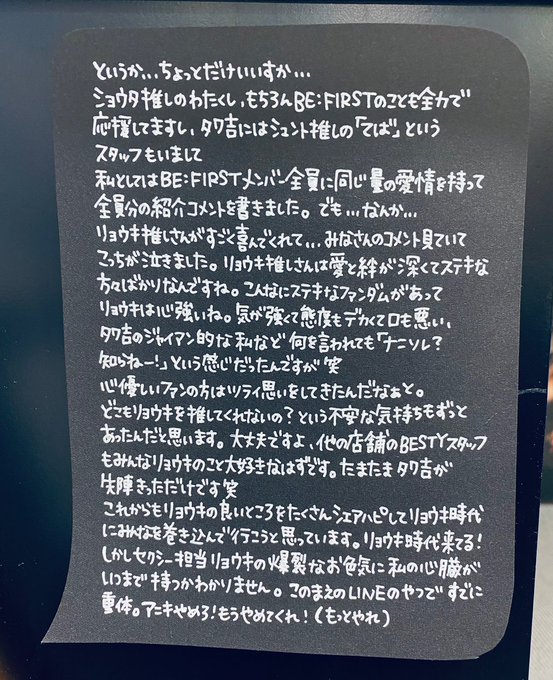 というか...ちょっとだけいいすか...
ショウタ推しのわたくし、もちろんBE:FIRSTのことも全力で
応援してますし、タワ吉にはシュント推しの「そば」という
スタッフもいまして
私としてはBE:FIRSTメンバー全員に同じ量の愛情を持って
全員分の紹介コメントを書きました。でも...なんか...
リョウキ推しさんがすごく喜んでくれて...みなさんのコメント見ていて
こっちが泣きました。リョウキ推しさんは愛と絆が深くてステキな
方々ばかりなんですね。こんなにステキなファンダムがあって
リョウキは心強いね。気が強くて態度もデカくて口も悪い、
タワ吉のジャイアン的な私など何を言われても「ナニソレ?
知らねー!」という感じだったんですが笑
心優しいファンの方はツライ思いをしてきたんだなぁと。
どこもリョウキを推してくれないの?という不安な気持ちもずっと
あったんだと思います。大丈夫ですよ、他の店舗のBESTYスタッフ
もみんなリョウキのこと大好きなはずです。たまたまタワ吉が
先陣きっただけです笑
これからもリョウキの良いところをたくさんシェアハピしてリョウキ時代
にみんなを巻き込んで行こうと思っています。リョウキ時代来てる!
しかしセクシー担当リョウキの爆裂なお色気に私の心臓が
いつまで持つかわかりません。このまえのLINEのやつですでに
重体。アニキやめろ!もうやめてくれ!(もっとやれ)